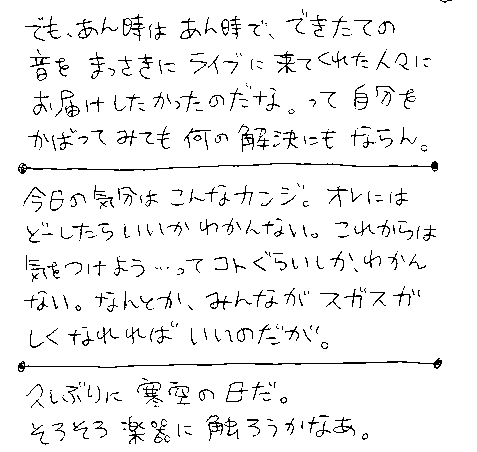 でも、あん時は あん時で、できたての
音を まっさきに ライブに 来てくれた人々に
お届けしたかったのだな。って 自分を
かばって みても 何の 解決にも ならん。
今日の気分は こんなカンジ。オレには
どーしたら いいか わかんない。これからは
気をつけよう…って コトぐらいしか、わかん
ない。なんとか、みんなが スガスガ
しく なれれば いいのだが。
久しぶりに 寒空の 日だ。
そろそろ 楽器に 触ろうかなあ。